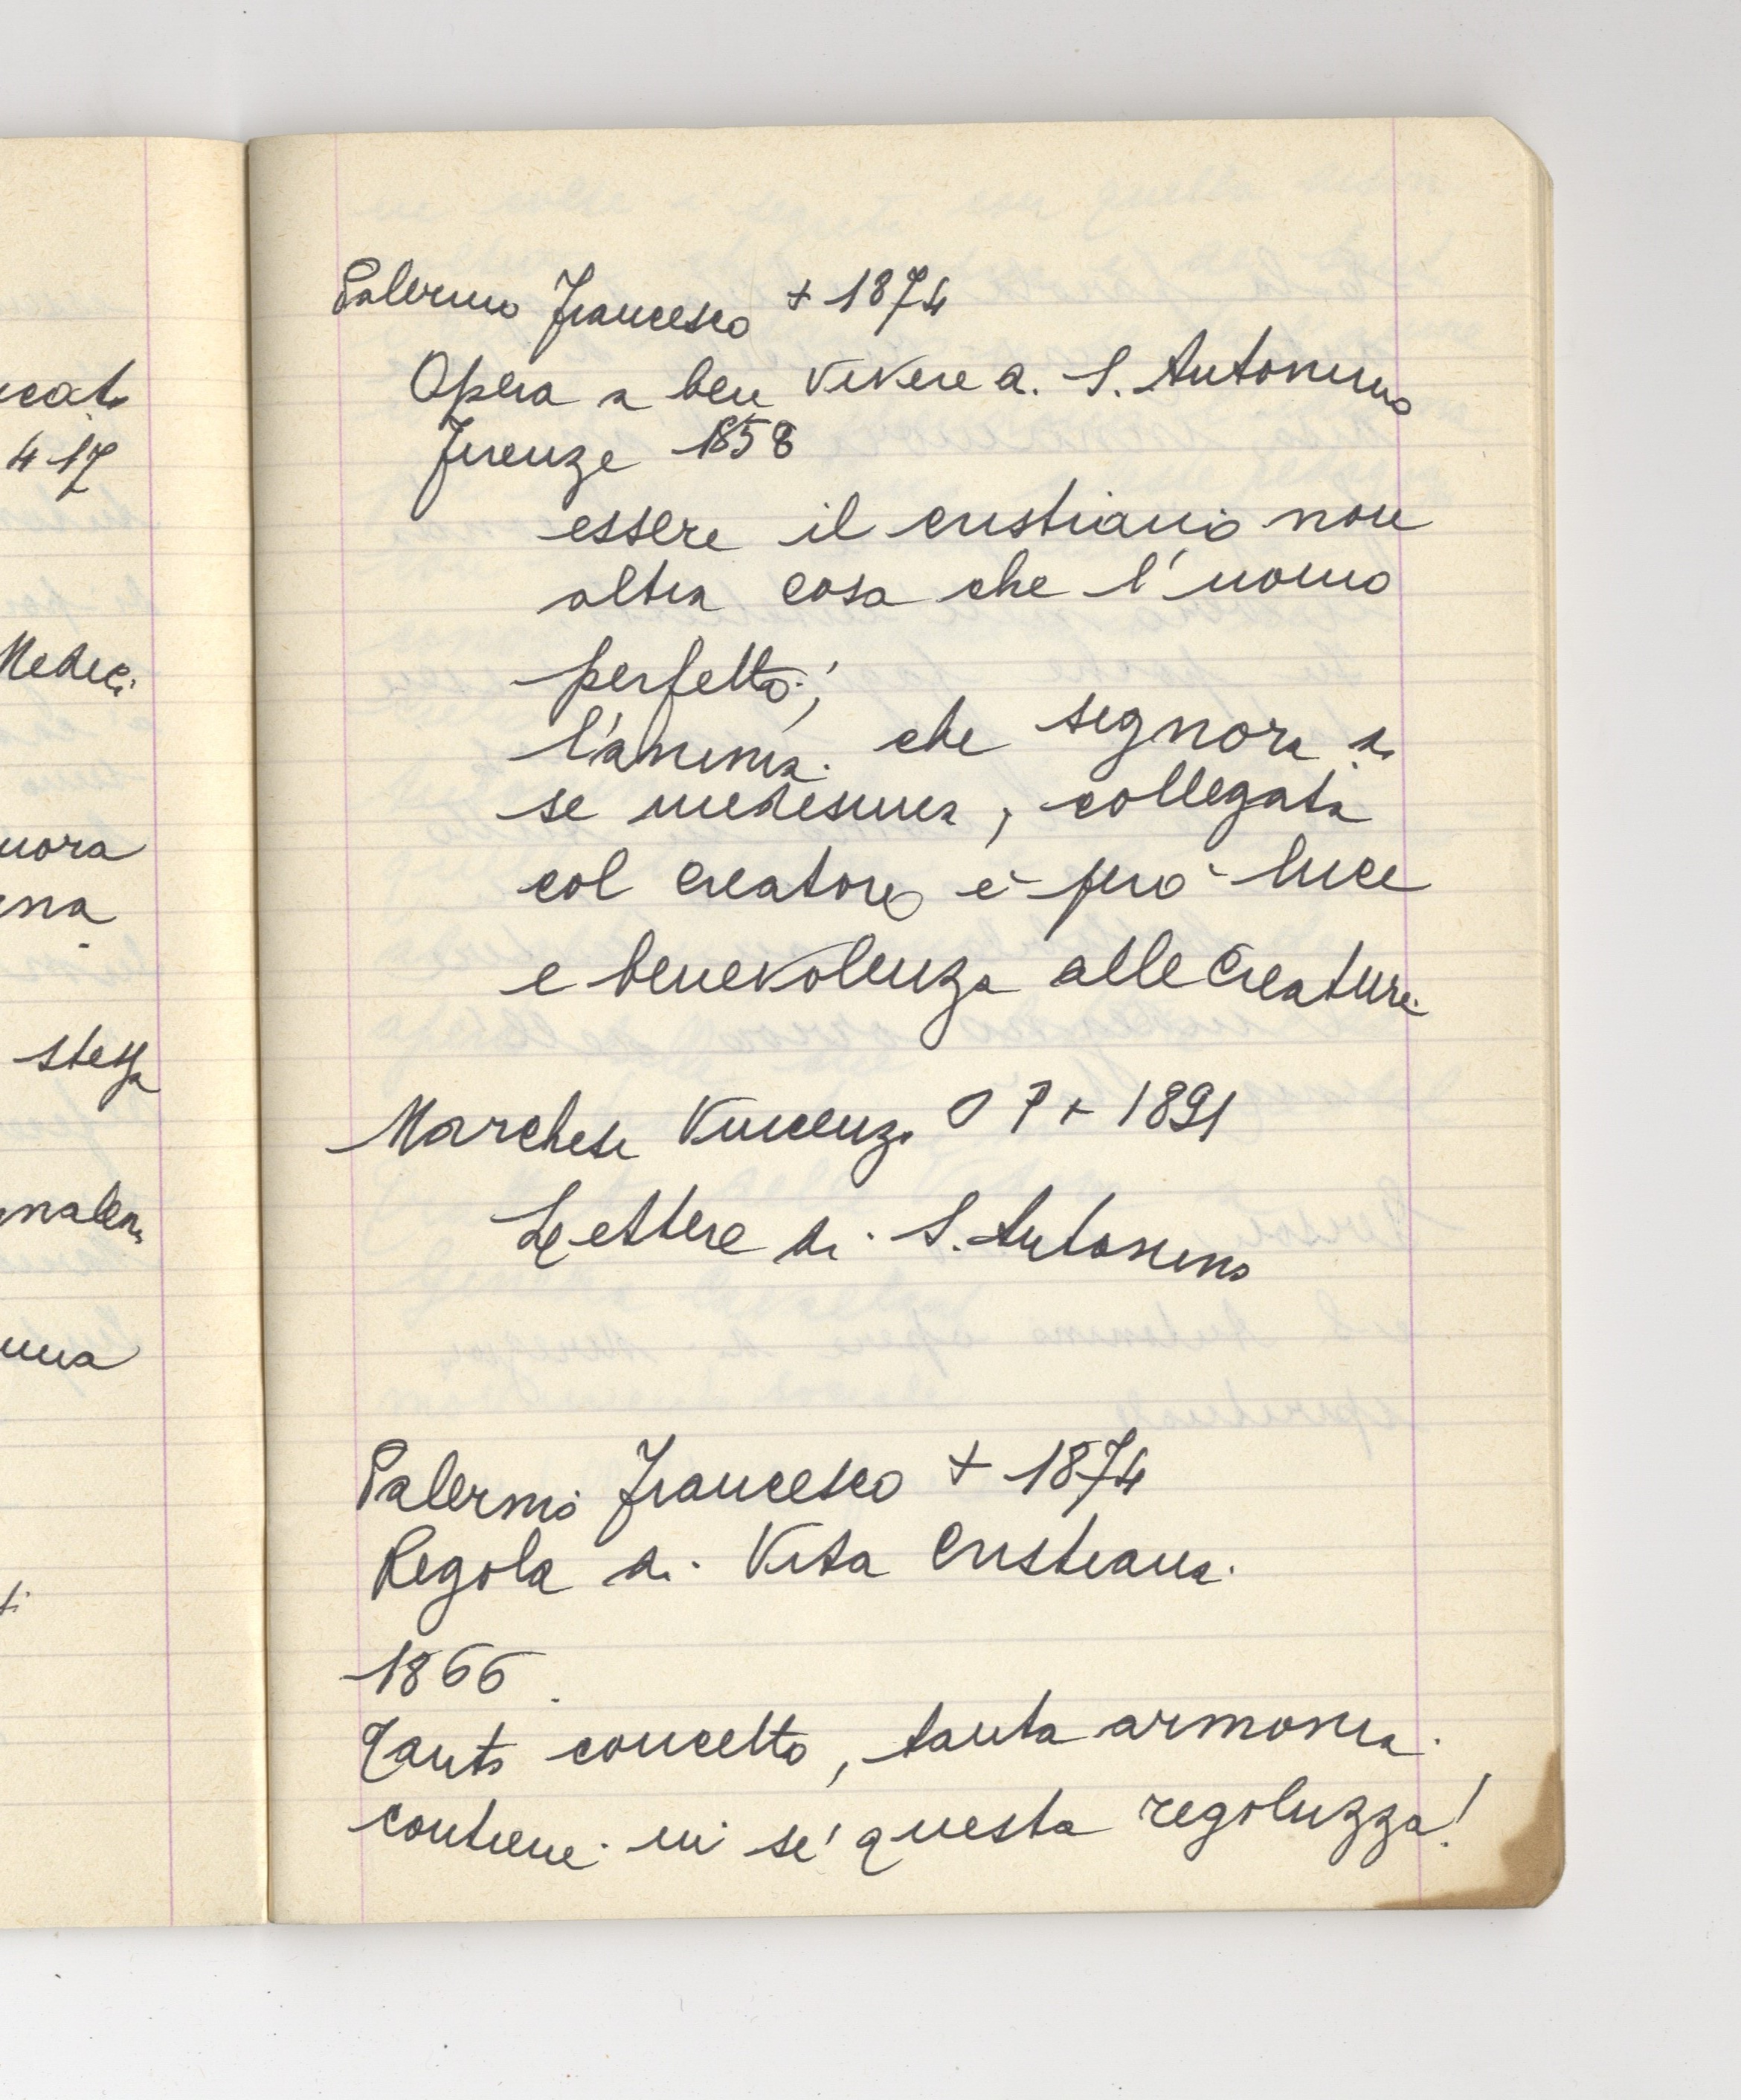 Palermo Francesco + 1874
Opera a ben vivere di S. Antonino
Firenze 1858
essere il cristiano non
altra cosa che l'uomo
perfetto;
l'anima che signora di
se medesima, collegata
col creatore è però luce
e benevolenza alle creature.
Marchese Vincenzo O P + 1891
Lettere di S. Antonino
Palermo Francesco + 1874
Regola di Vita Cristiana.
1866.
Tanto concetto, tanta armonia
contiene in sé questa regoluzza!
4 17
Medici
stessa